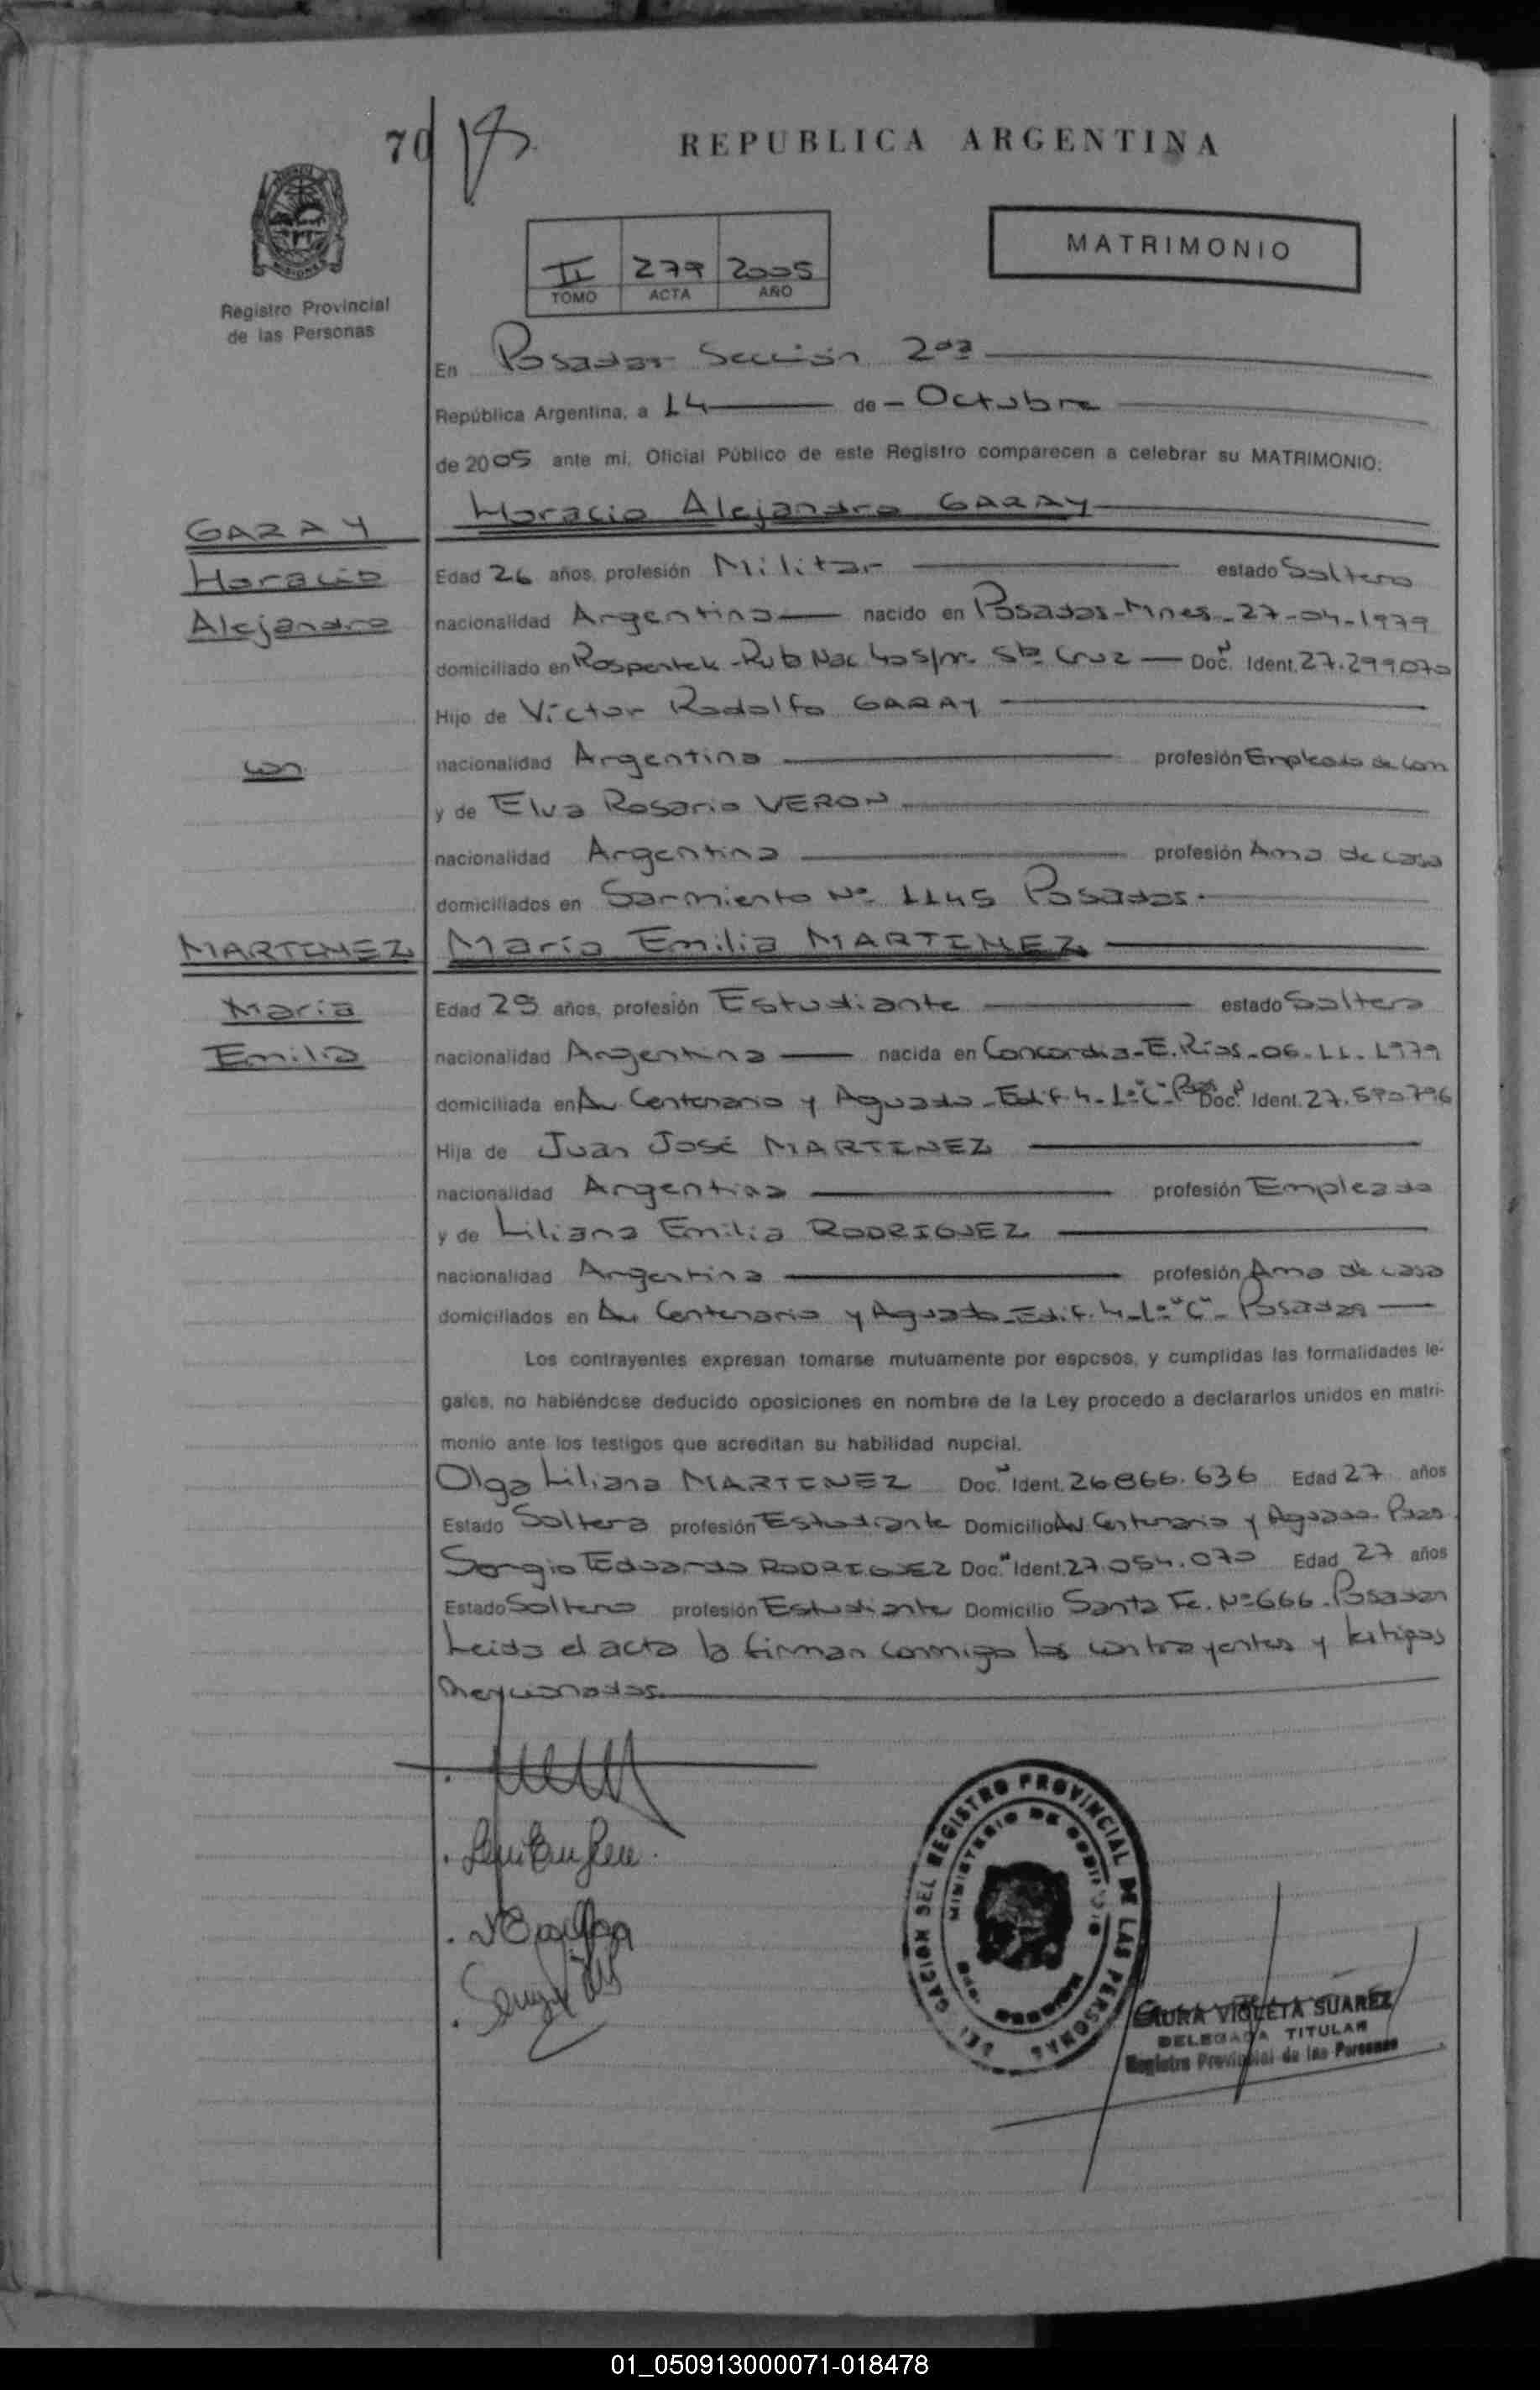 70
REPUBLICA ARGENTINA
MATRIMONIO
II 279 2005
TOMO ACTA AÑO
Registro Provincial
de las Personas
En Posadas Sección 2da
República Argentina, a 14 de Octubre
de 2005 ante mi, Oficial Público de este Registro comparecen a celebrar su MATRIMONIO:
GARAY
Horacio
Alejandro
con
MARTINEZ
María
Emilia
Horacio Alejandro GARAY
Edad 26 años, profesión Militar estado Soltero
nacionalidad Argentina nacido en Posadas-Mnes-27-04-1979
domiciliado en Rospentek-Ruta Nac 40 s/nº Sta Cruz Doc. Ident. 27.299.070
Hijo de Víctor Rodolfo GARAY
nacionalidad Argentina profesión Empleado de Com
y de Elva Rosario VERON
nacionalidad Argentina profesión Ama de casa
domiciliados en Sarmiento Nº 1145 Posadas.
María Emilia MARTINEZ
Edad 25 años, profesión Estudiante estado Soltera
nacionalidad Argentina nacida en Concordia-E.Ríos-06-11-1979
domiciliada en Av. Centenario y Aguado-Edif. 4-1º"C"-Pos Doc. Ident. 27.590796
Hija de Juan José MARTINEZ
nacionalidad Argentina profesión Empleado
y de Liliana Emilia RODRIGUEZ
nacionalidad Argentina profesión Ama de casa
domiciliados en Av. Centenario y Aguado-Edif. 4-1º"C"-Posadas
Los contrayentes expresan tomarse mutuamente por esposos, y cumplidas las formalidades le-
gales, no habiéndose deducido oposiciones en nombre de la Ley procedo a declararlos unidos en matri-
monio ante los testigos que acreditan su habilidad nupcial.
Olga Liliana MARTINEZ Doc. Ident. 26866.636 Edad 27 años
Estado Soltera profesión Estudiante Domicilio Av Centenario y Aguado-Pdas
Sergio Eduardo RODRIGUEZ Doc. Ident. 27.054.070 Edad 27 años
Estado Soltero profesión Estudiante Domicilio Santa Fe. Nº 666-Posadas
Leida el acta la firman conmigo los contrayentes y testigos
mencionados.
DELEGACION DEL REGISTRO PROVINCIAL DE LAS PERSONAS
MINISTERIO DE GOBIERNO
LAURA VIOLETA SUAREZ
DELEGADA TITULAR
Registro Provincial de las Personas
01_050913000071-018478